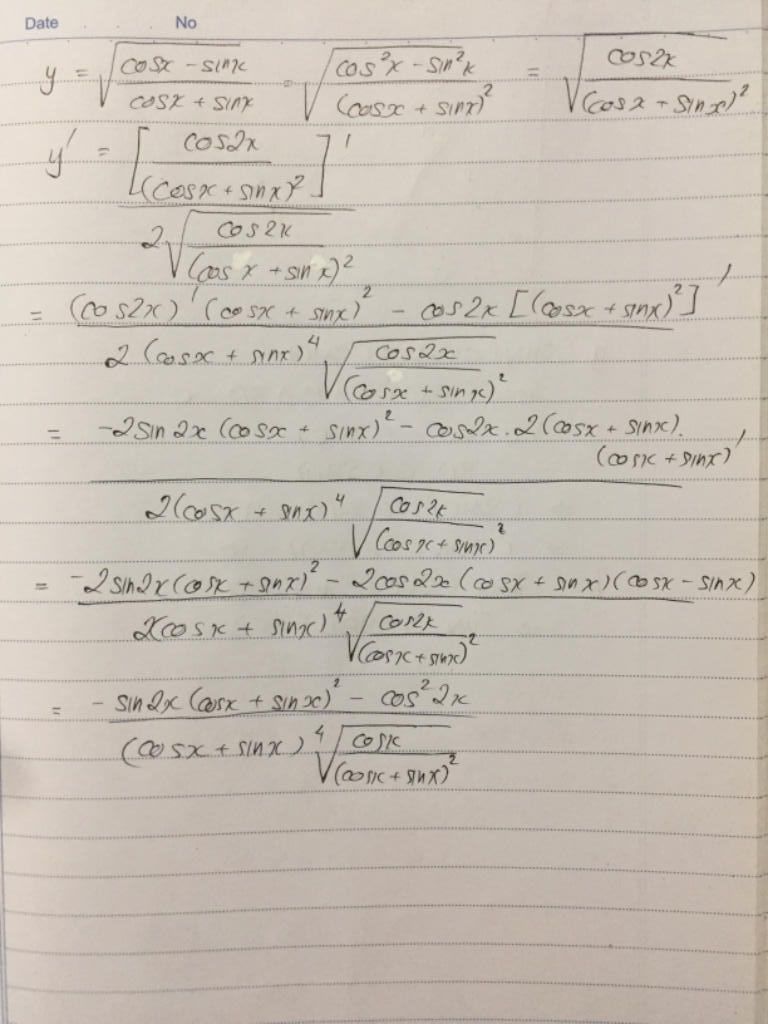 Date No
y = √((cosx - sinx)/(cosx + sinx)) = √((cos²x - sin²x)/(cosx + sinx)²) = √(cos2x/(cosx + sinx)²)
y' = [cos2x/(cosx + sinx)²]' / 2√(cos2x/(cosx + sinx)²)
= ((cos2x)'(cosx + sinx)² - cos2x[(cosx + sinx)²]') / 2(cosx + sinx)⁴√(cos2x/(cosx + sinx)²)
= (-2sin2x(cosx + sinx)² - cos2x.2(cosx + sinx).(cosx + sinx)') / 2(cosx + sinx)⁴√(cos2x/(cosx + sinx)²)
= (-2sin2x(cosx + sinx)² - 2cos2x(cosx + sinx)(cosx - sinx)) / 2(cosx + sinx)⁴√(cos2x/(cosx + sinx)²)
= (-sin2x(cosx + sinx)² - cos²2x) / (cosx + sinx)⁴√(cosx/(cosx + sinx)²)